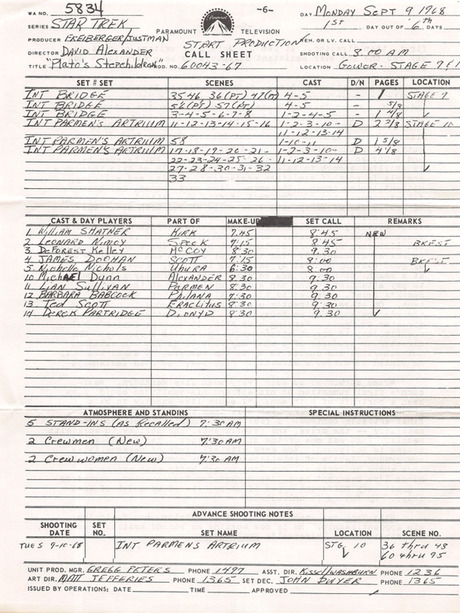 WA NO. 5834 -6- DAY MONDAY SEPT 9 1968
SERIES STAR TREK PARAMOUNT TELEVISION 1st DAY OUT OF 6th DAYS
PRODUCER FREIBERGER/JUSTMAN START PRODUCTION REH. OR LV. CALL
DIRECTOR DAVID ALEXANDER CALL SHEET SHOOTING CALL 8:00 AM
TITLE "Plato's Stepchildren" PROD. NO. 60043-67 LOCATION GOWER - STAGE 9/1
SET # SET SCENES CAST D/N PAGES LOCATION
INT BRIDGE 35 46, 36(PT) 47(PT) 4-5 - 1 STAGE 9
INT BRIDGE 56(PT) 57(PT) 4-5 - 5/8
INT BRIDGE 3-4-5-6-7-8 1-2-4-5 - 1 4/8
INT PARMEN'S ARTRIUM 11-12-13-14-15-16 1-2-3-10- D 2 3/8 STAGE 10
11-12-13-14
INT PARMEN'S ARTRIUM 58 1-10-11 D 1 5/8
INT PARMEN'S ARTRIUM 17-18-19-20-21- 1-2-3-10- D 4 1/8
22-23-24-25-26- 11-12-13-14
27-28-30-31-32
33
CAST & DAY PLAYERS PART OF MAKE-UP SET CALL REMARKS
1 William SHATNER KIRK 7:45 8:45 NEW
2 LEONARD NIMOY SPOCK 7:15 8:45 BKFST
3 DeFOREST KELLEY McCOY 8:30 9:30
4 JAMES DOOHAN SCOTT 7:15 8:00 BKFST
5 Nichelle Nichols UHURA 6:30 8:00
10 MICHAEL DUNN ALEXANDER 8:30 9:30
11 LIAM SULLIVAN PARMEN 8:30 9:30
12 BARBARA BABCOCK PHILANA 7:30 9:30
13 TED SCOTT ERACLITUS 8:30 9:30
14 DEREK PARTRIDGE DIONYD 8:30 9:30
ATMOSPHERE AND STANDINS SPECIAL INSTRUCTIONS
5 STAND-INS (AS Recalled) 7:30 AM
2 Crewmen (New) 7:30 AM
2 Crewwomen (New) 6:30 AM
ADVANCE SHOOTING NOTES
SHOOTING DATE SET NO. SET NAME LOCATION SCENE NO.
TUES 9-10-68 INT PARMEN'S ARTRIUM STG 10 36 thru 43
60 thru 95
UNIT PROD. MGR. GREGG PETERS PHONE 1497 ASST. DIR. PHONE 1236
ART DIR. MATT JEFFERIES PHONE 1365 SET DEC. JOHN DWYER PHONE 1365
ISSUED BY OPERATIONS: DATE TIME APPROVED